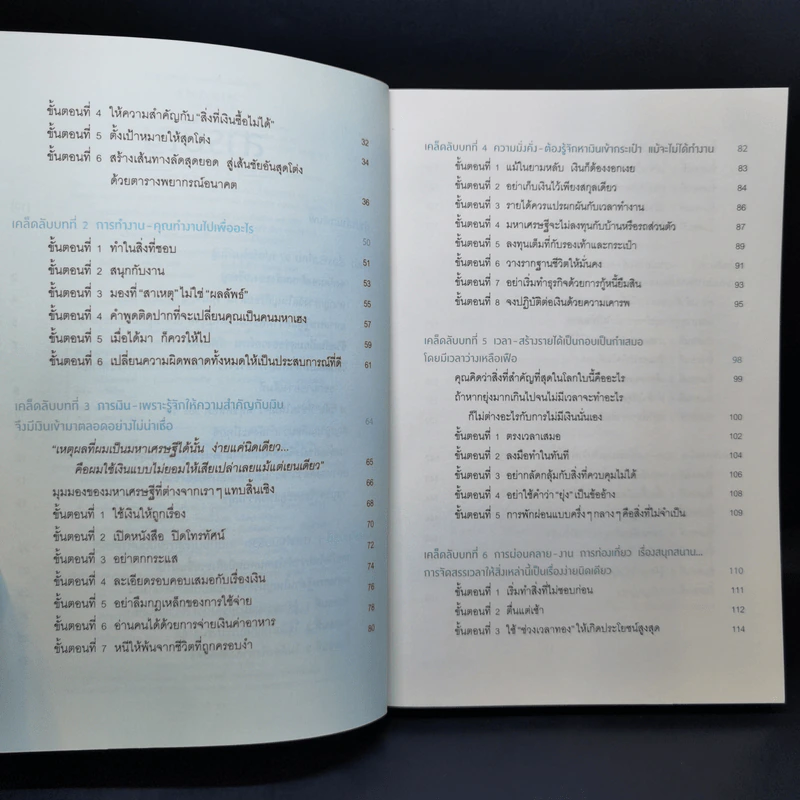 ขั้นตอนที่ 4 ให้ความสำคัญกับ "สิ่งที่เงินซื้อไม่ได้"
ขั้นตอนที่ 5 ตั้งเป้าหมายให้สุดโต่ง 32
ขั้นตอนที่ 6 สร้างเส้นทางลัดสุดยอด สู่เส้นชัยอันสุดโต่ง 34
ด้วยตารางพยากรณ์อนาคต
36
เคล็ดลับบทที่ 2 การทำงาน-คุณทำงานไปเพื่ออะไร 50
ขั้นตอนที่ 1 ทำในสิ่งที่ชอบ 51
ขั้นตอนที่ 2 สนุกกับงาน 53
ขั้นตอนที่ 3 มองที่ "สาเหตุ" ไม่ใช่ "ผลลัพธ์" 55
ขั้นตอนที่ 4 คำพูดติดปากที่จะเปลี่ยนคุณเป็นคนมหาเฮง 57
ขั้นตอนที่ 5 เมื่อได้มา ก็ควรให้ไป 59
ขั้นตอนที่ 6 เปลี่ยนความผิดพลาดทั้งหมดให้เป็นประสบการณ์ที่ดี 61
เคล็ดลับบทที่ 3 การเงิน-เพราะรู้จักให้ความสำคัญกับเงิน
จึงมีเงินเข้ามาตลอดอย่างไม่น่าเชื่อ 64
"เหตุผลที่ผมเป็นมหาเศรษฐีได้นั้น ง่ายแค่นิดเดียว...
คือผมใช้เงินแบบไม่ยอมให้เสียเปล่าเลยแม้แต่เยนเดียว" 65
มุมมองของมหาเศรษฐีที่ต่างจากเราๆ แทบสิ้นเชิง 66
ขั้นตอนที่ 1 ใช้เงินให้ถูกเรื่อง 68
ขั้นตอนที่ 2 เปิดหนังสือ ปิดโทรทัศน์ 70
ขั้นตอนที่ 3 อย่าตกกระแส 72
ขั้นตอนที่ 4 ละเอียดรอบคอบเสมอกับเรื่องเงิน 74
ขั้นตอนที่ 5 อย่าลืมกฎเหล็กของการใช้จ่าย 76
ขั้นตอนที่ 6 อ่านคนได้ด้วยการจ่ายเงินค่าอาหาร 78
ขั้นตอนที่ 7 หนีให้พ้นจากชีวิตที่ถูกครอบงำ 80
เคล็ดลับบทที่ 4 ความมั่งคั่ง-ต้องรู้จักหาเงินเข้ากระเป๋า แม้จะไม่ได้ทำงาน 82
ขั้นตอนที่ 1 แม้ในยามหลับ เงินก็ต้องงอกเงย 83
ขั้นตอนที่ 2 อย่าเก็บเงินไว้เพียงสกุลเดียว 84
ขั้นตอนที่ 3 รายได้ควรแปรผกผันกับเวลาทำงาน 86
ขั้นตอนที่ 4 มหาเศรษฐีจะไม่ลงทุนกับบ้านหรือรถส่วนตัว 87
ขั้นตอนที่ 5 ลงทุนเต็มที่กับรองเท้าและกระเป๋า 89
ขั้นตอนที่ 6 วางรากฐานชีวิตให้มั่นคง 91
ขั้นตอนที่ 7 อย่าเริ่มทำธุรกิจด้วยการกู้หนี้ยืมสิน 93
ขั้นตอนที่ 8 จงปฏิบัติต่อเงินด้วยความเคารพ 95
เคล็ดลับบทที่ 5 เวลา-สร้างรายได้เป็นกอบเป็นกำเสมอ
โดยมีเวลาว่างเหลือเฟือ 98
คุณคิดว่าสิ่งที่สำคัญที่สุดในโลกใบนี้คืออะไร 99
ถ้าหากยุ่งมากเกินไปจนไม่มีเวลาจะทำอะไร
ก็ไม่ต่างอะไรกับการไม่มีเงินนั่นเอง 100
ขั้นตอนที่ 1 ตรงเวลาเสมอ 102
ขั้นตอนที่ 2 ลงมือทำในทันที 104
ขั้นตอนที่ 3 อย่ากลัดกลุ้มกับสิ่งที่ควบคุมไม่ได้ 106
ขั้นตอนที่ 4 อย่าใช้คำว่า "ยุ่ง" เป็นข้ออ้าง 108
ขั้นตอนที่ 5 การพักผ่อนแบบครึ่งๆ กลางๆ คือสิ่งที่ไม่จำเป็น 109
เคล็ดลับบทที่ 6 การผ่อนคลาย-งาน การท่องเที่ยว เรื่องสนุกสนาน...
การจัดสรรเวลาให้สิ่งเหล่านี้เป็นเรื่องง่ายนิดเดียว 110
ขั้นตอนที่ 1 เริ่มทำสิ่งที่ไม่ชอบก่อน 111
ขั้นตอนที่ 2 ตื่นแต่เช้า 112
ขั้นตอนที่ 3 ใช้ "ช่วงเวลาทอง" ให้เกิดประโยชน์สูงสุด 114